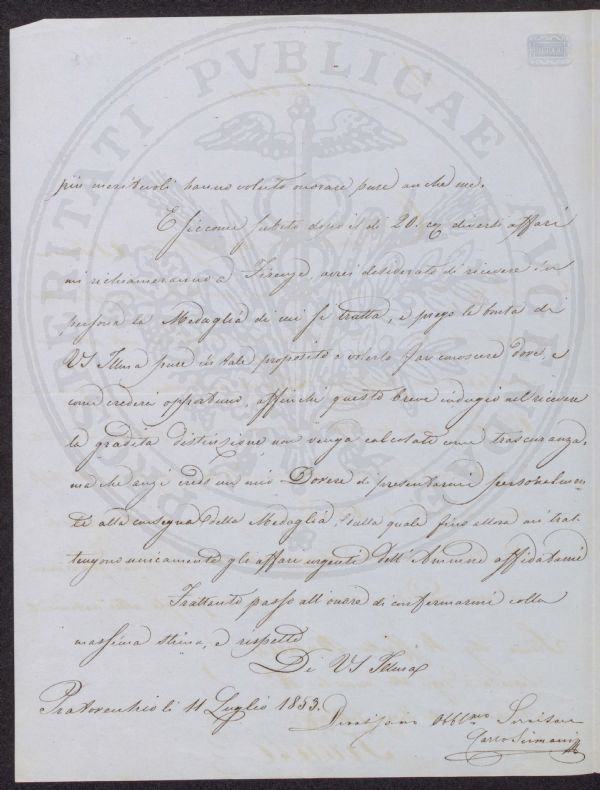 più meritevoli hanno voluto onorare pure anche me.
E siccome subito dopo il dì 20. diversi affari
mi richiameranno a Firenze, avrei desiderato di ricevere in
persona la Medaglia di cui si tratta, e prego la bontà di
VS Illma pure in tale proposito a volerlo far conoscere dove, e
come crederà opportuno, affinchè questo breve indugio nel ricevere
la gradita distinzione non venga calcolata come trascuranza,
ma che anzi credo un mio Dovere di presentarmi personalmen-
te alla consegna della Medaglia, dalla quale fino allora mi trat-
tengono unicamente gli affari urgenti dell' Ammne affidatami
Frattanto passo all' onore di confermarmi colla
massima stima, e rispetto
Di VS Illma
Pratovecchio li 11 Luglio 1853.
Devotissimo Obblmo Servitore
Carlo Siemoni
PROSPERITATI PVBLICAE AVGENDAE